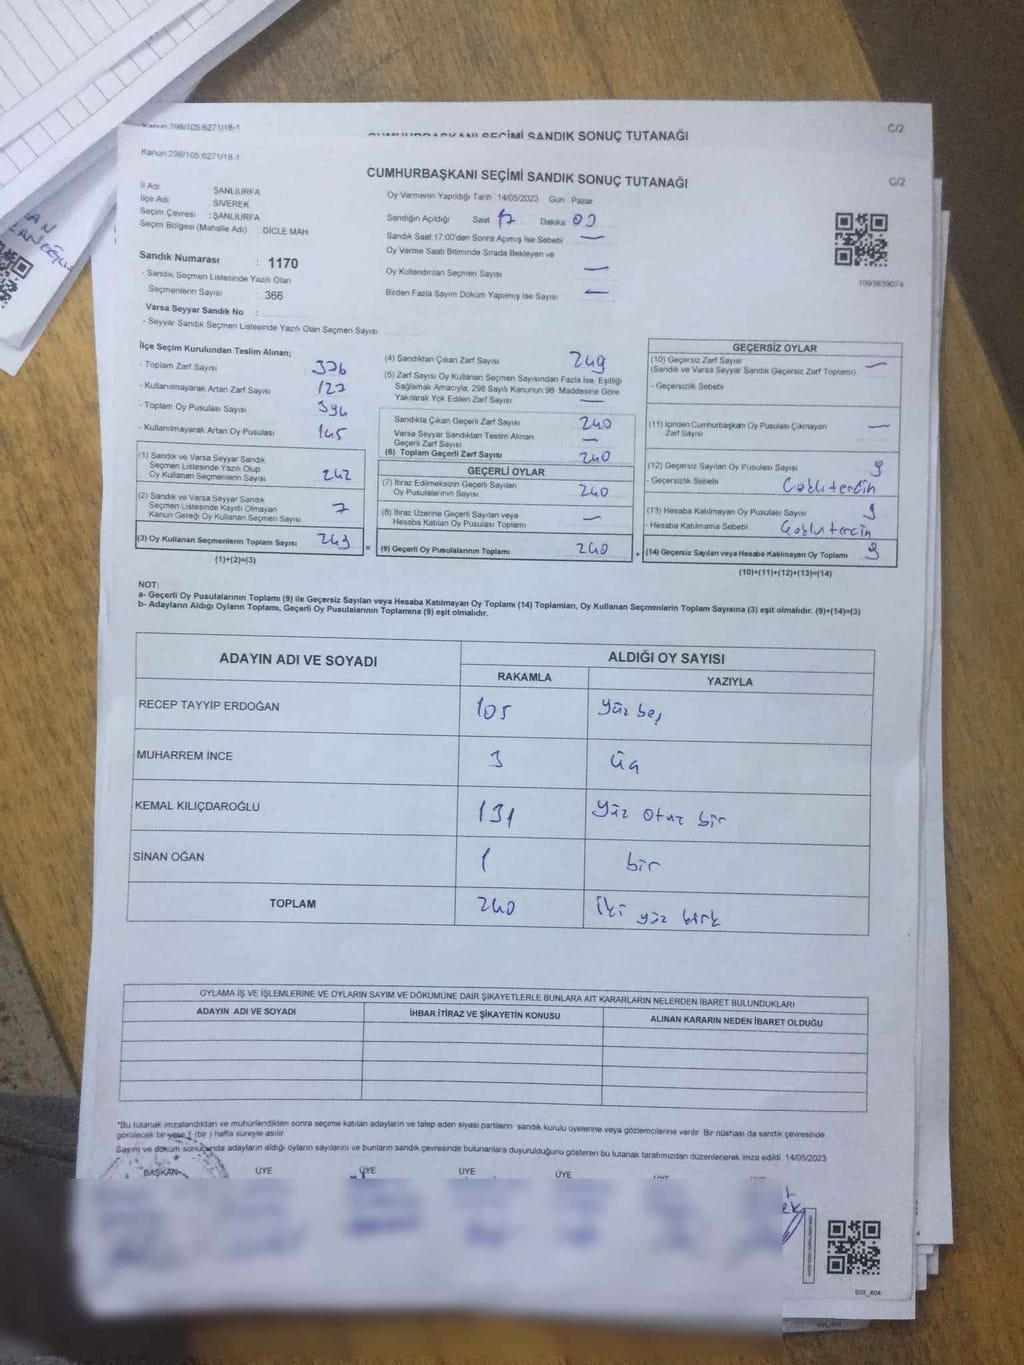 Kanun 298/105,6271/18-1
SEÇİMİ SANDIK SONUÇ TUTANAĞI
C/2
Kanun 298/105,6271/18-1
CUMHURBAŞKANI SEÇİMİ SANDIK SONUÇ TUTANAĞI
C/2
İl Adı ŞANLIURFA
İlçe Adı SİVEREK
Seçim Çevresi : ŞANLIURFA
Seçim Bölgesi (Mahalle Adı) : DİCLE MAH
Sandık Numarası : 1170
- Sandık Seçmen Listesinde Yazılı Olan
Seçmenlerin Sayısı : 366
Varsa Seyyar Sandık No :
- Seyyar Sandık Seçmen Listesinde Yazılı Olan Seçmen Sayısı
Oy Vermenin Yapıldığı Tarih 14/05/2023 Gün Pazar
Sandığın Açıldığı Saat 17 Dakika 00
Sandık Saat 17:00'den Sonra Açımış İse Sebebi —
Oy Verme Saati Bitiminde Sırada Bekleyen ve
Oy Kullandırılan Seçmen Sayısı —
Birden Fazla Sayım Döküm Yapılmış İse Sayısı —
1091639074
İlçe Seçim Kurulundan Teslim Alınan;
- Toplam Zarf Sayısı 376
- Kullanılmayarak Artan Zarf Sayısı 127
- Toplam Oy Pusulası Sayısı 394
- Kullanılmayarak Artan Oy Pusulası 145
(1) Sandık ve Varsa Seyyar Sandık
Seçmen Listesinde Yazılı Olup
Oy Kullanan Seçmenlerin Sayısı 242
(2) Sandık ve Varsa Seyyar Sandık
Seçmen Listesinde Kayıtlı Olmayan
Kanun Gereği Oy Kullanan Seçmen Sayısı 7
(3) Oy Kullanan Seçmenlerin Toplam Sayısı 249
(1)+(2)=(3)
(4) Sandıktan Çıkan Zarf Sayısı 249
(5) Zarf Sayısı Oy Kullanan Seçmen Sayısından Fazla İse, Eşitliği
Sağlamak Amacıyla, 298 Sayılı Kanunun 98. Maddesine Göre
Yakılarak Yok Edilen Zarf Sayısı —
Sandıkta Çıkan Geçerli Zarf Sayısı 240
Varsa Seyyar Sandıktan Teslim Alınan
Geçerli Zarf Sayısı —
(6) Toplam Geçerli Zarf Sayısı 240
GEÇERLİ OYLAR
(7) İtiraz Edilmeksizin Geçerli Sayılan
Oy Pusulalarının Sayısı 240
(8) İtiraz Üzerine Geçerli Sayılan veya
Hesaba Katılan Oy Pusulası Toplamı —
= (9) Geçerli Oy Pusulalarının Toplamı 240
GEÇERSİZ OYLAR
(10) Geçersiz Zarf Sayısı —
(Sandık ve Varsa Seyyar Sandık Geçersiz Zarf Toplamı)
- Geçersizlik Sebebi
(11) İçinden Cumhurbaşkanı Oy Pusulası Çıkmayan
Zarf Sayısı —
(12) Geçersiz Sayılan Oy Pusulası Sayısı 9
- Geçersizlik Sebebi Çoklu tercih
(13) Hesaba Katılmayan Oy Pusulası Sayısı 9
- Hesaba Katılmama Sebebi Çoklu tercih
+ (14) Geçersiz Sayılan veya Hesaba Katılmayan Oy Toplamı 9
(10)+(11)+(12)+(13)=(14)
NOT:
a- Geçerli Oy Pusulalarının Toplamı (9) ile Geçersiz Sayılan veya Hesaba Katılmayan Oy Toplamı (14) Toplamları, Oy Kullanan Seçmenlerin Toplam Sayısına (3) eşit olmalıdır. (9)+(14)=(3)
b- Adayların Aldığı Oyların Toplamı, Geçerli Oy Pusulalarının Toplamına (9) eşit olmalıdır.
ADAYIN ADI VE SOYADI ALDIĞI OY SAYISI
RAKAMLA YAZIYLA
RECEP TAYYİP ERDOĞAN 105 Yüz beş
MUHARREM İNCE 3 Üç
KEMAL KILIÇDAROĞLU 131 Yüz otuz bir
SİNAN OĞAN 1 bir
TOPLAM 240 İki yüz kırk
OYLAMA İŞ VE İŞLEMLERİNE VE OYLARIN SAYIM VE DÖKÜMÜNE DAİR ŞİKAYETLERLE BUNLARA AİT KARARLARIN NELERDEN İBARET BULUNDUKLARI
ADAYIN ADI VE SOYADI İHBAR İTİRAZ VE ŞİKAYETİN KONUSU ALINAN KARARIN NEDEN İBARET OLDUĞU
*Bu tutanak imzalandıktan ve mühürlendikten sonra seçime katılan adayların ve talep eden siyasi partilerin sandık kurulu üyelerine veya gözlemcilerine verilir. Bir nüshası da sandık çevresinde
görülecek bir yere 1 (bir) hafta süreyle asılır.
Sayım ve döküm sonucunda adayların aldığı oyların sayılarını ve bunların sandık çevresinde bulunanlara duyurulduğunu gösteren bu tutanak tarafımızdan düzenlenerek imza edildi. 14/05/2023
BAŞKAN ÜYE ÜYE ÜYE ÜYE